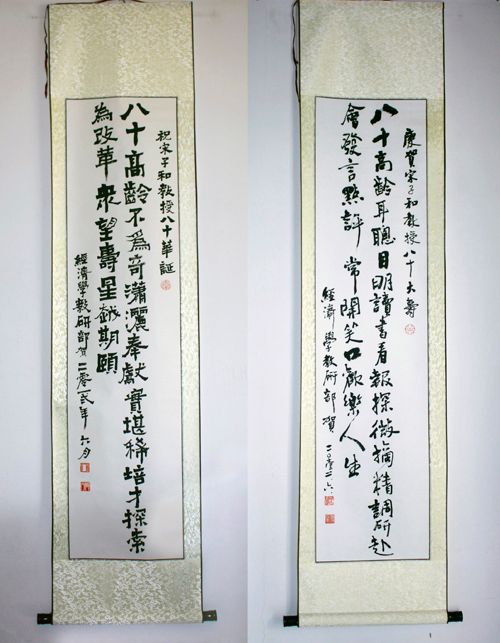 祝宋子和教授八十華誕
八十高齡不為奇瀟灑奉獻實堪稀培才探索
為改革眾望壽星越期頤
經濟學教研部賀 年六月
慶賀宋子和教授八十大壽
八十高齡耳聰目明讀書看報探微摘精調研赴
會發言點評常開笑口歡樂人生
經濟學教研部賀